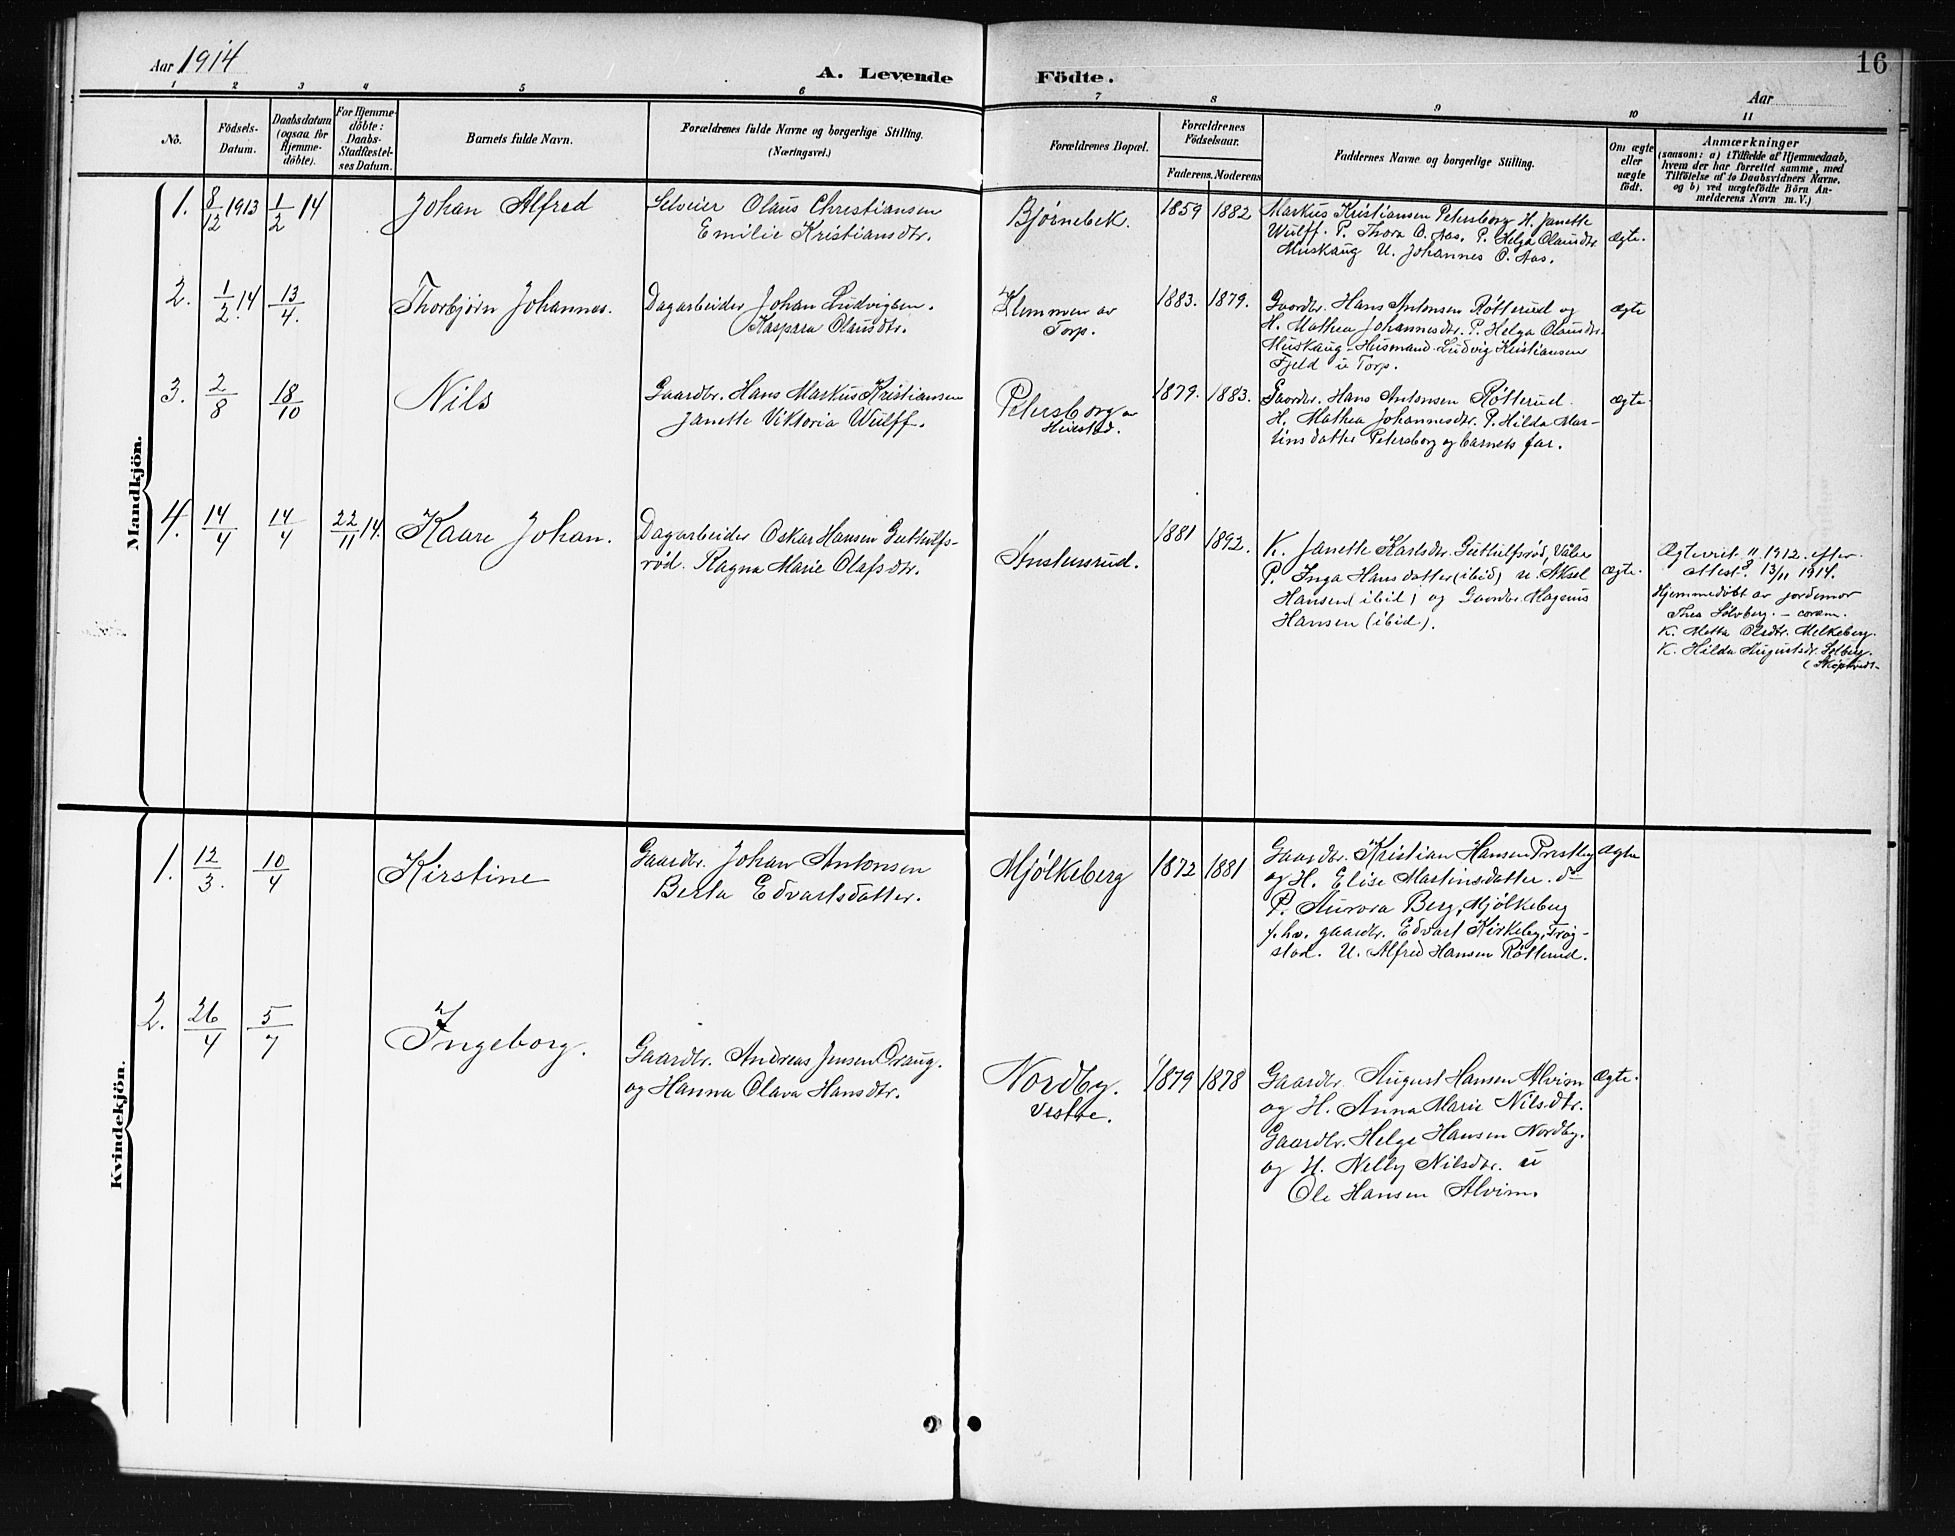 Aar 1914
A. Levende Födte.
Aar
16
1 2 3 4 5 6 7 8 9 10 11
No.
Födsels-
Datum.
Daabsdatum
(ogsaa for
Hjemme-
döbte).
For Hjemme-
döbte:
Daabs-
Stadfæstel-
ses Datum.
Barnets fulde Navn.
Forældrenes fulde Navne og borgerlige Stilling.
(Næringsvei.)
Forældrenes Bopæl.
Forældrenes
Födselsaar.
Faderens. Moderens
Faddernes Navne og borgerlige Stilling.
Om ægte
eller
uægte
födt.
Anmærkninger
(saasom: a) i Tilfælde af Hjemmedaab,
hvem der har forrettet samme, med
Tilföielse af to Daabsvidners Navne,
og b) ved uægtefödte Börn An-
melderens Navn m. V.)
Mandkjön.
1. 8/12 1913 1/2 14
Johan Alfred
Selveier Olaus Christiansen
Emilie Kristiansdtr.
Bjørnebek.
1859 1882
Markus Kristiansen Petersborg H. Janette
Wulff. P. Thora O. Aas. P. Helga Olausdtr
Muskaug U. Johannes O. Aas.
Ægte.
2. 1/2 14 13/4
Thorbjørn Johannes.
Dagarbeider Johan Ludvigsen.
Kaspara Olausdtr.
Klemmen av
Torp.
1883. 1879.
Gaardbr. Hans Antonsen Røtterud og
H. Mathea Johannesdtr. P. Helga Olausdtr.
Muskaug - Husmand Ludvig Kristiansen
Fjeld u Torp.
Ægte
3. 2/8 18/10
Nils
Gaardbr. Hans Markus Kristiansen
Janette Viktoria Wulff.
Petersborg av
1879. 1883.
Gaardbr. Hans Antonsen Røtterud.
H. Mathea Johannesdtr. P. Hilda Mar-
tinsdatter Petersborg og barnets far.
Ægte.
4. 14/4 14/4 22/11 14.
Kaare Johan.
Dagarbeider Oskar Hansen Guthulfs-
rød. Ragna Marie Olafsdtr.
Anstensrud.
1881 1892.
K. Janette Karlsdtr. Guthulfsrød, Våler
P. Inga Hansdatter (ibid) u. Aksel
Hansen (ibid) og Gaardbr. Magnus
Hansen (ibid).
Ægte.
Ægteviet 11/8 1912 efter
attest 13/11 1914.
Hjemmedøbt av jordemor
Thea Sølvberg. - coram.
K. Metta Olsdtr. Melkeberg.
K. Hilda Augustsdr. Solberg.
Kvindekjön.
1. 12/3. 10/4
Kirstine
Gaardbr. Johan Antonsen
Berta Edvartsdatter.
Mjølkeberg
1872 1881
Gaardbr. Kristian Hansen Prestby
og H. Elise Martinsdatter. do
P. Aurora Berg, Mjølkeberg
f.hv. gaardbr. Edvart Kirkeby, Trøg-
stad. U. Alfred Hansen Røtterud.
Ægte
2. 26/4 5/7
Ingeborg.
Gaardbr. Andreas Jensen Oraug.
og Hanna Olava Hansdtr.
Nordby.
Vestre.
1879 1878
Gaardbr. August Hansen Alvim
og H. Anna Marie Nilsdtr.
Gaardbr. Helge Hansen Nordby.
og H. Nelly Nilsdtr. u
Ole Hansen Alvim.
Ægte.